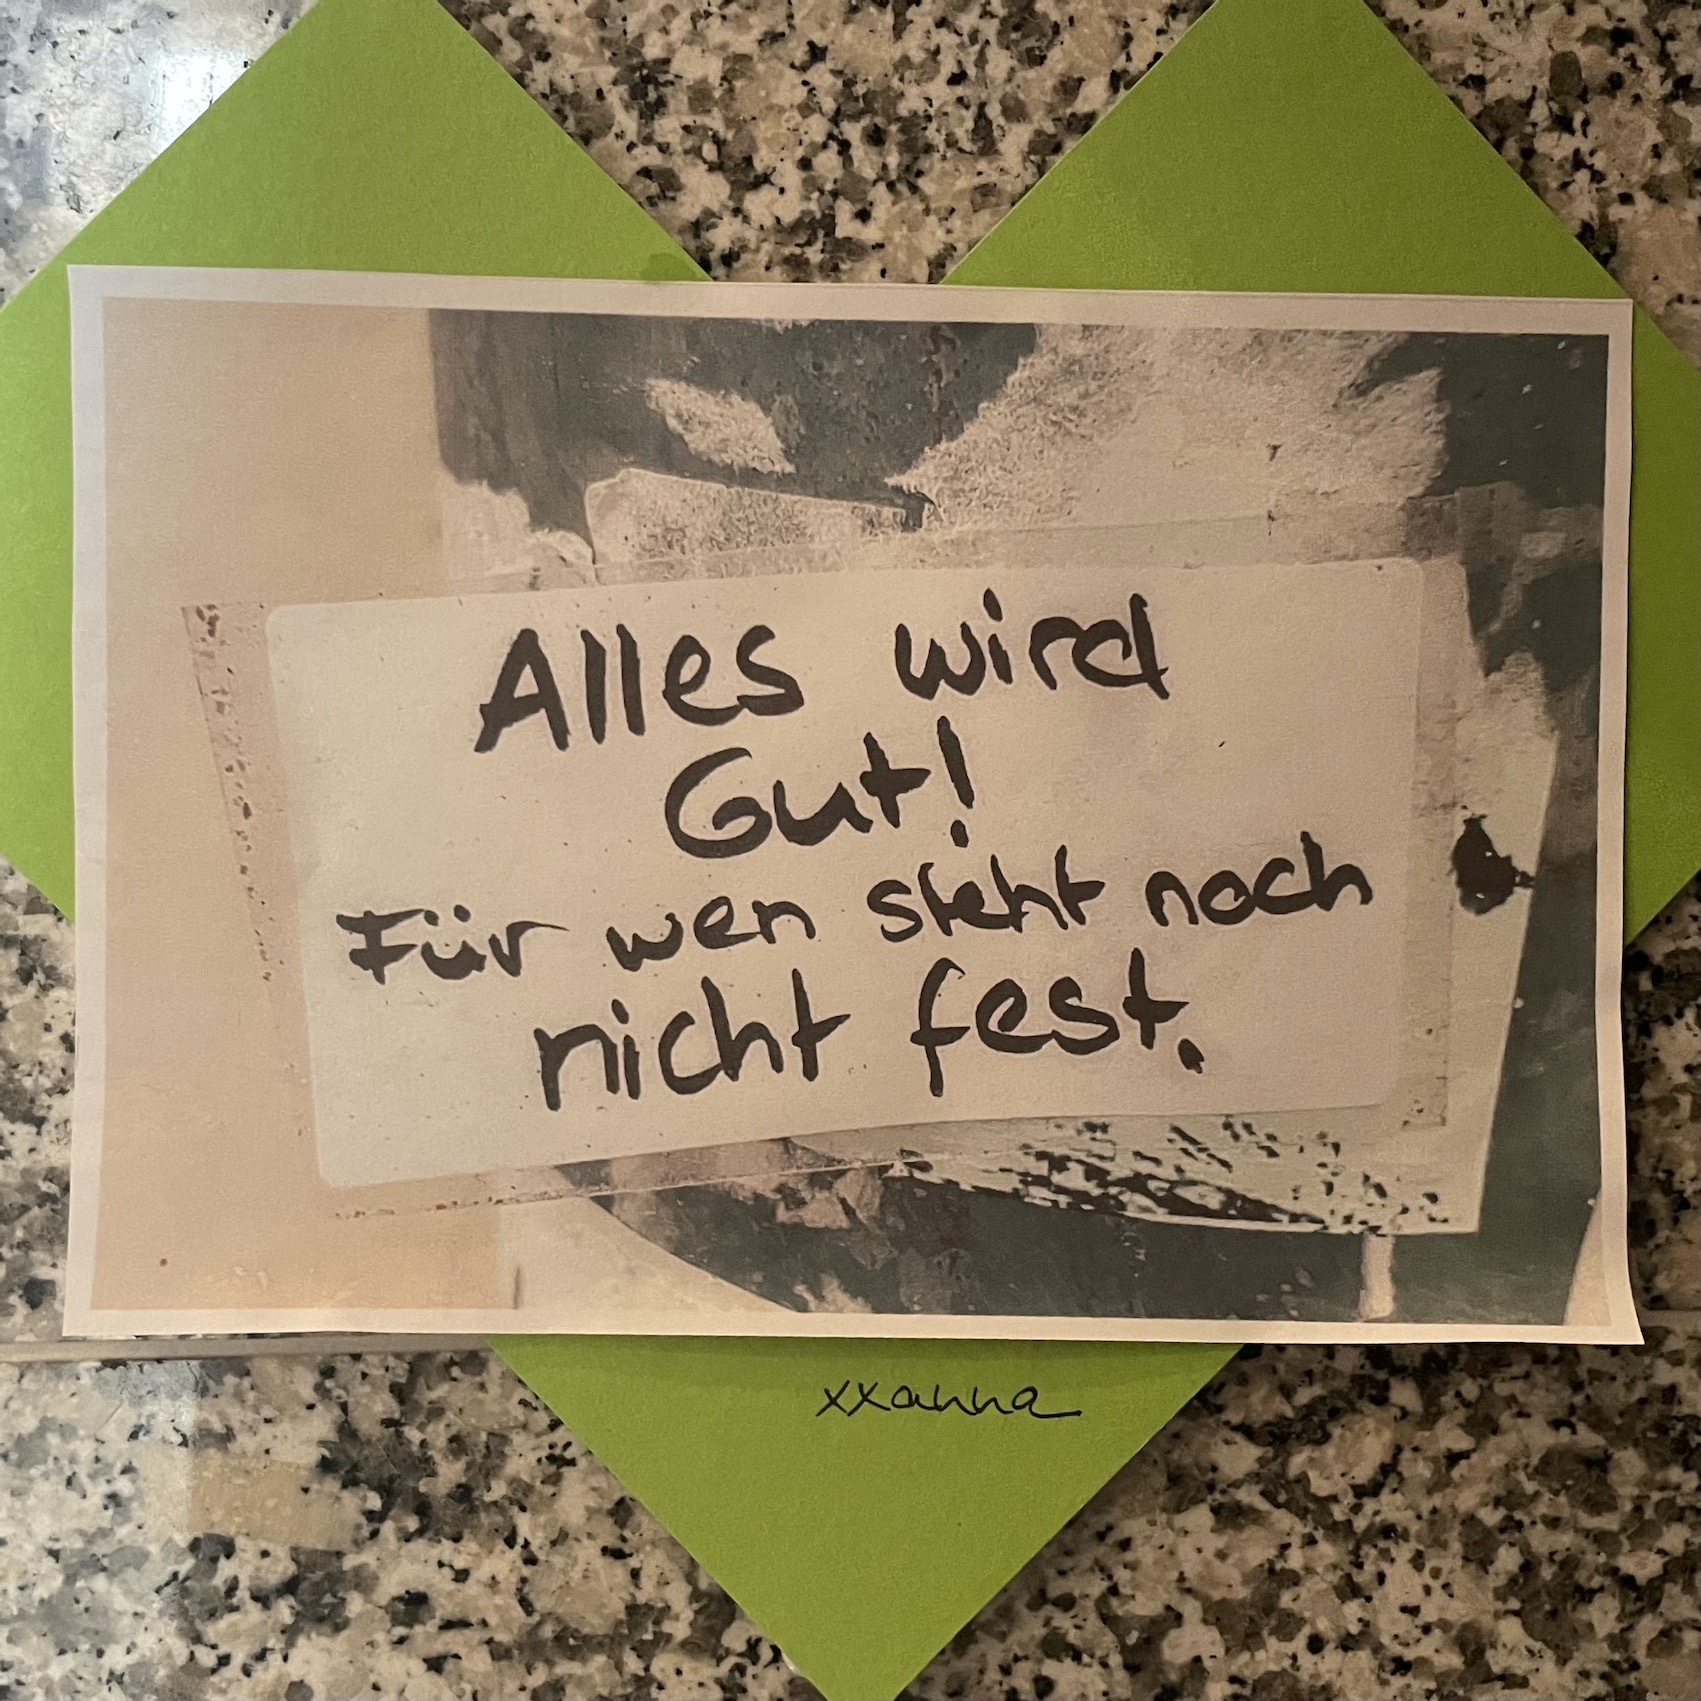 Alles wird
Gut!
Für wen steht noch
nicht fest.
xxanna